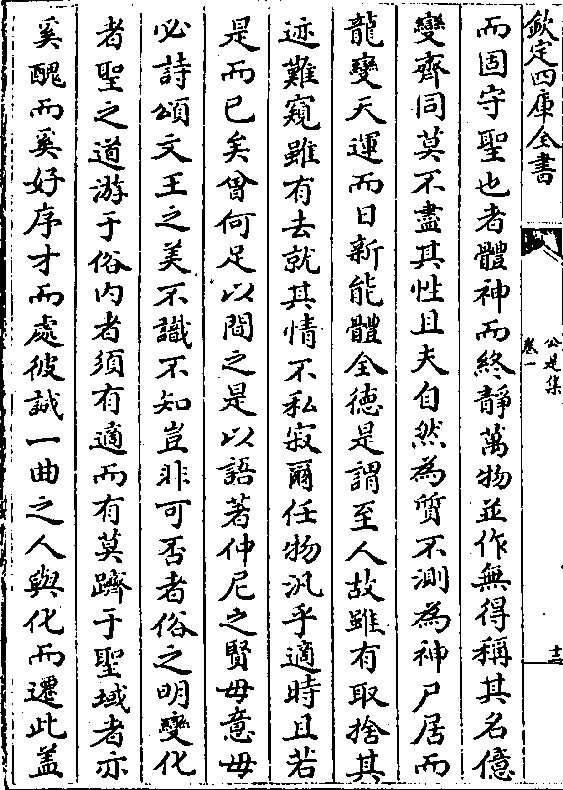 欽定四庫全書
公是集
卷一
十二
而固守聖也者體神而終靜萬物並作無得稱其名億
變齊同莫不盡其性且夫自然為質不測為神尸居而
龍變天運而日新能體全徳是謂至人故雖有取捨其
迹難窺雖有去就其情不私寂爾任物汎乎適時且若
是而已矣曾何足以間之是以語著仲尼之賢毋意毋
必詩頌文王之美不識不知豈非可否者俗之明變化
者聖之道游于俗内者須有適而有莫躋于聖域者亦
奚醜而奚好序才而處彼誠一曲之人與化而遷此蓋